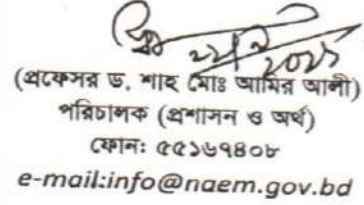 (প্রফেসর ড. শাহ মোঃ আমির আলী)
পরিচালক (প্রশাসন ও অর্থ)
ফোন: ৫৫১৬৭৪০৮
e-mail:info@naem.gov.bd